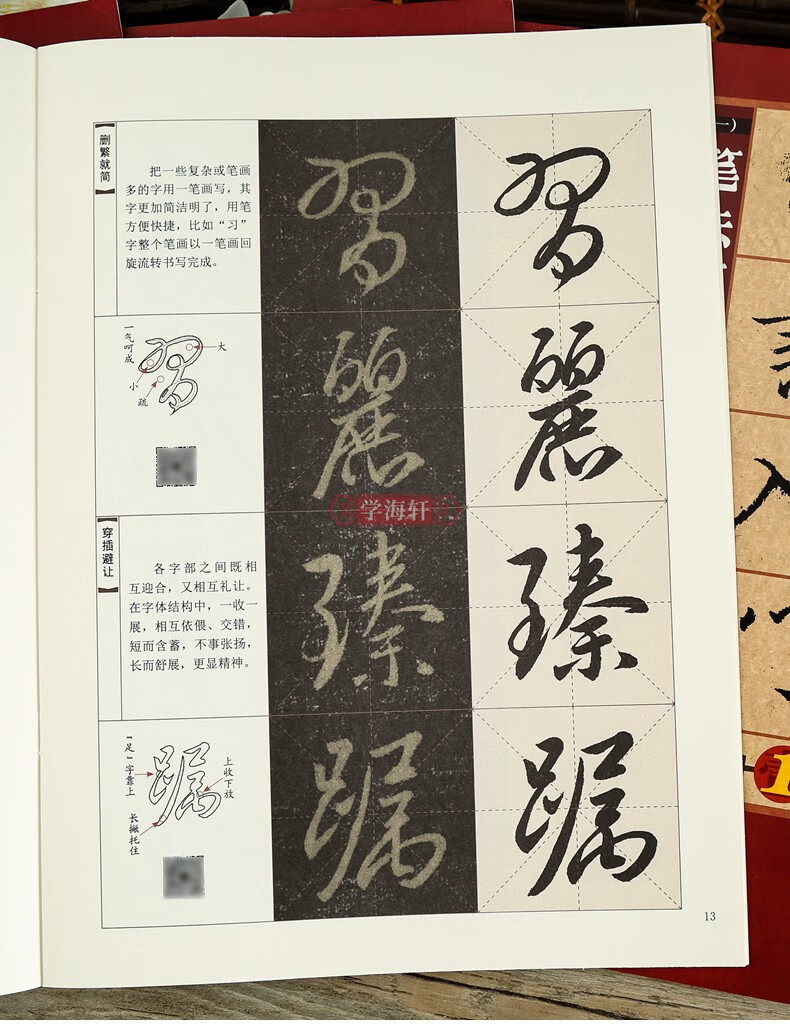 删繁就简
把一些复杂或笔画
多的字用一笔画写，其
字更加简洁明了，用笔
方便快捷，比如“习”
字整个笔画以一笔画回
旋流转书写完成。
習
習
一气呵成
習
大
小
疏
麗
麗
学海轩
穿插避让
各字部之间既相
互迎合，又相互礼让。
在字体结构中，一收一
展，相互依偎、交错，
短而含蓄，不事张扬，
长而舒展，更显精神。
臻
臻
“足”字靠上
蹰
上收下放
长撇托住
13
一）
笔
入